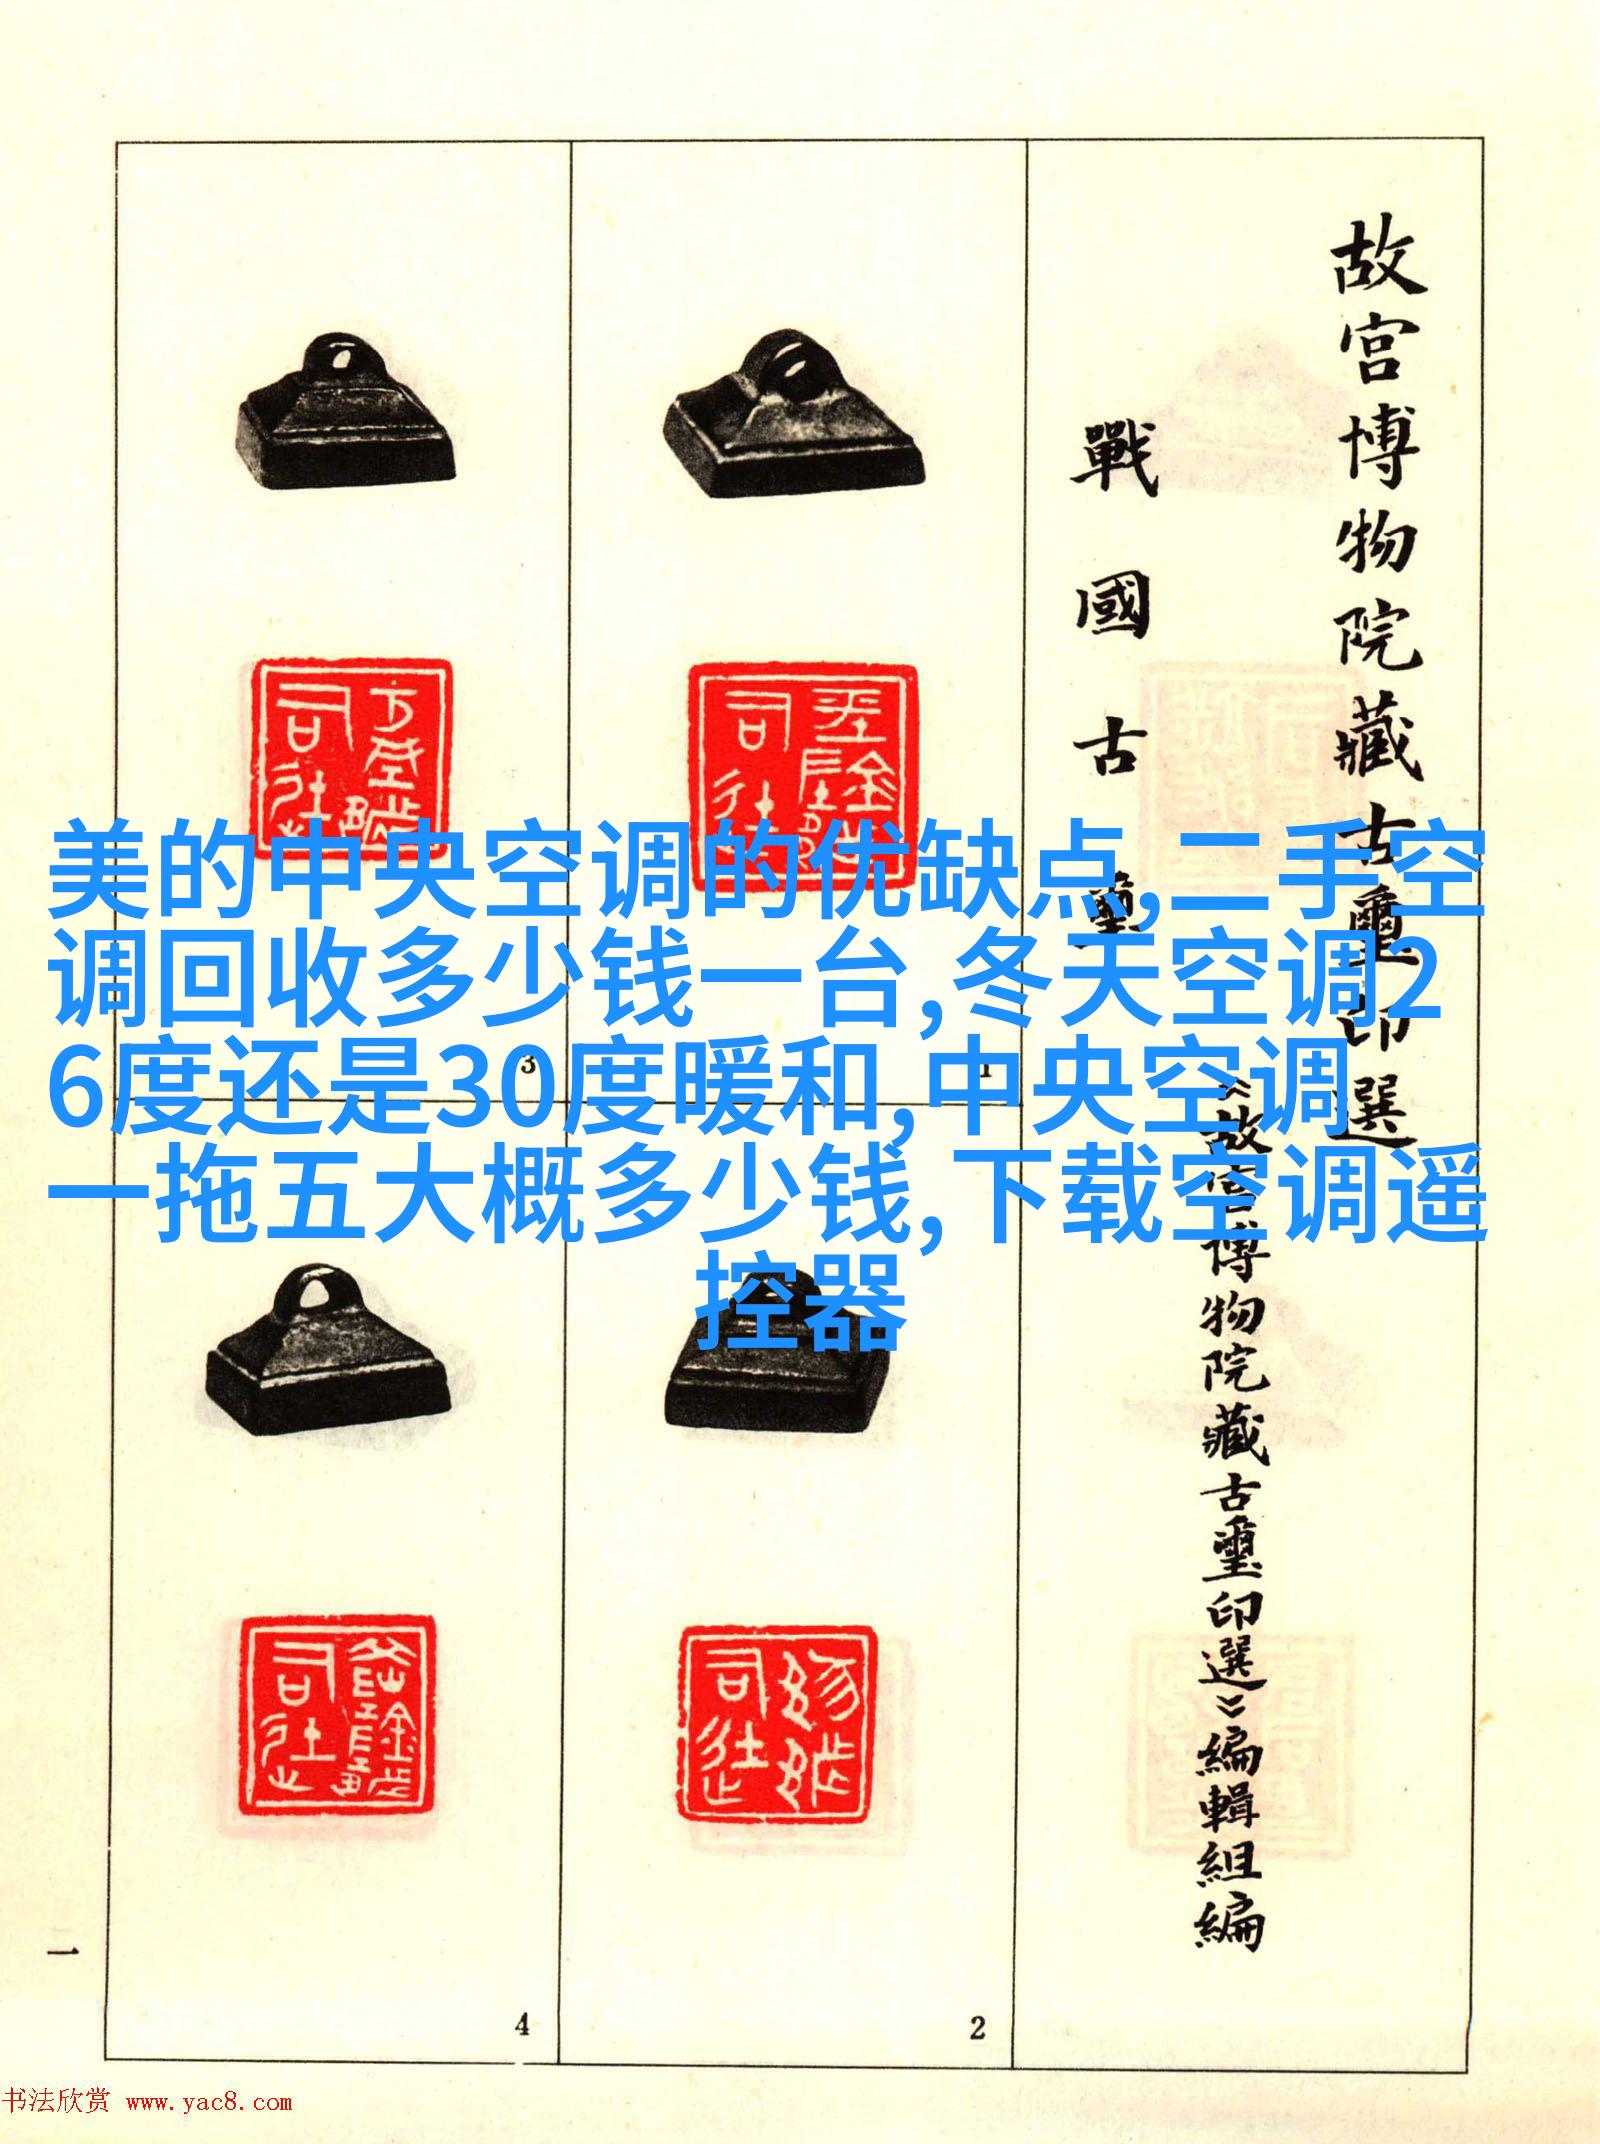 故宮博物院藏古璽印選
戰國古璽
《故宮博物院藏古璽印選》編輯組編
美的中央空调的优缺点,二手空
调回收多少钱一台,冬天空调2
6度还是30度暖和,中央空调
一拖五大概多少钱,下载空调遥
控器
3
1
4
2
一
书法欣赏 www.yac8.com